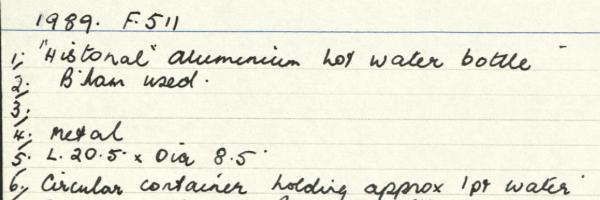 1989. F.511
1; "Histonal" aluminium hot water bottle
2. B'ham used.
3.
4. Metal
5. L. 20.5 x Dia 8.5
6. Circular container holding approx 1pt water